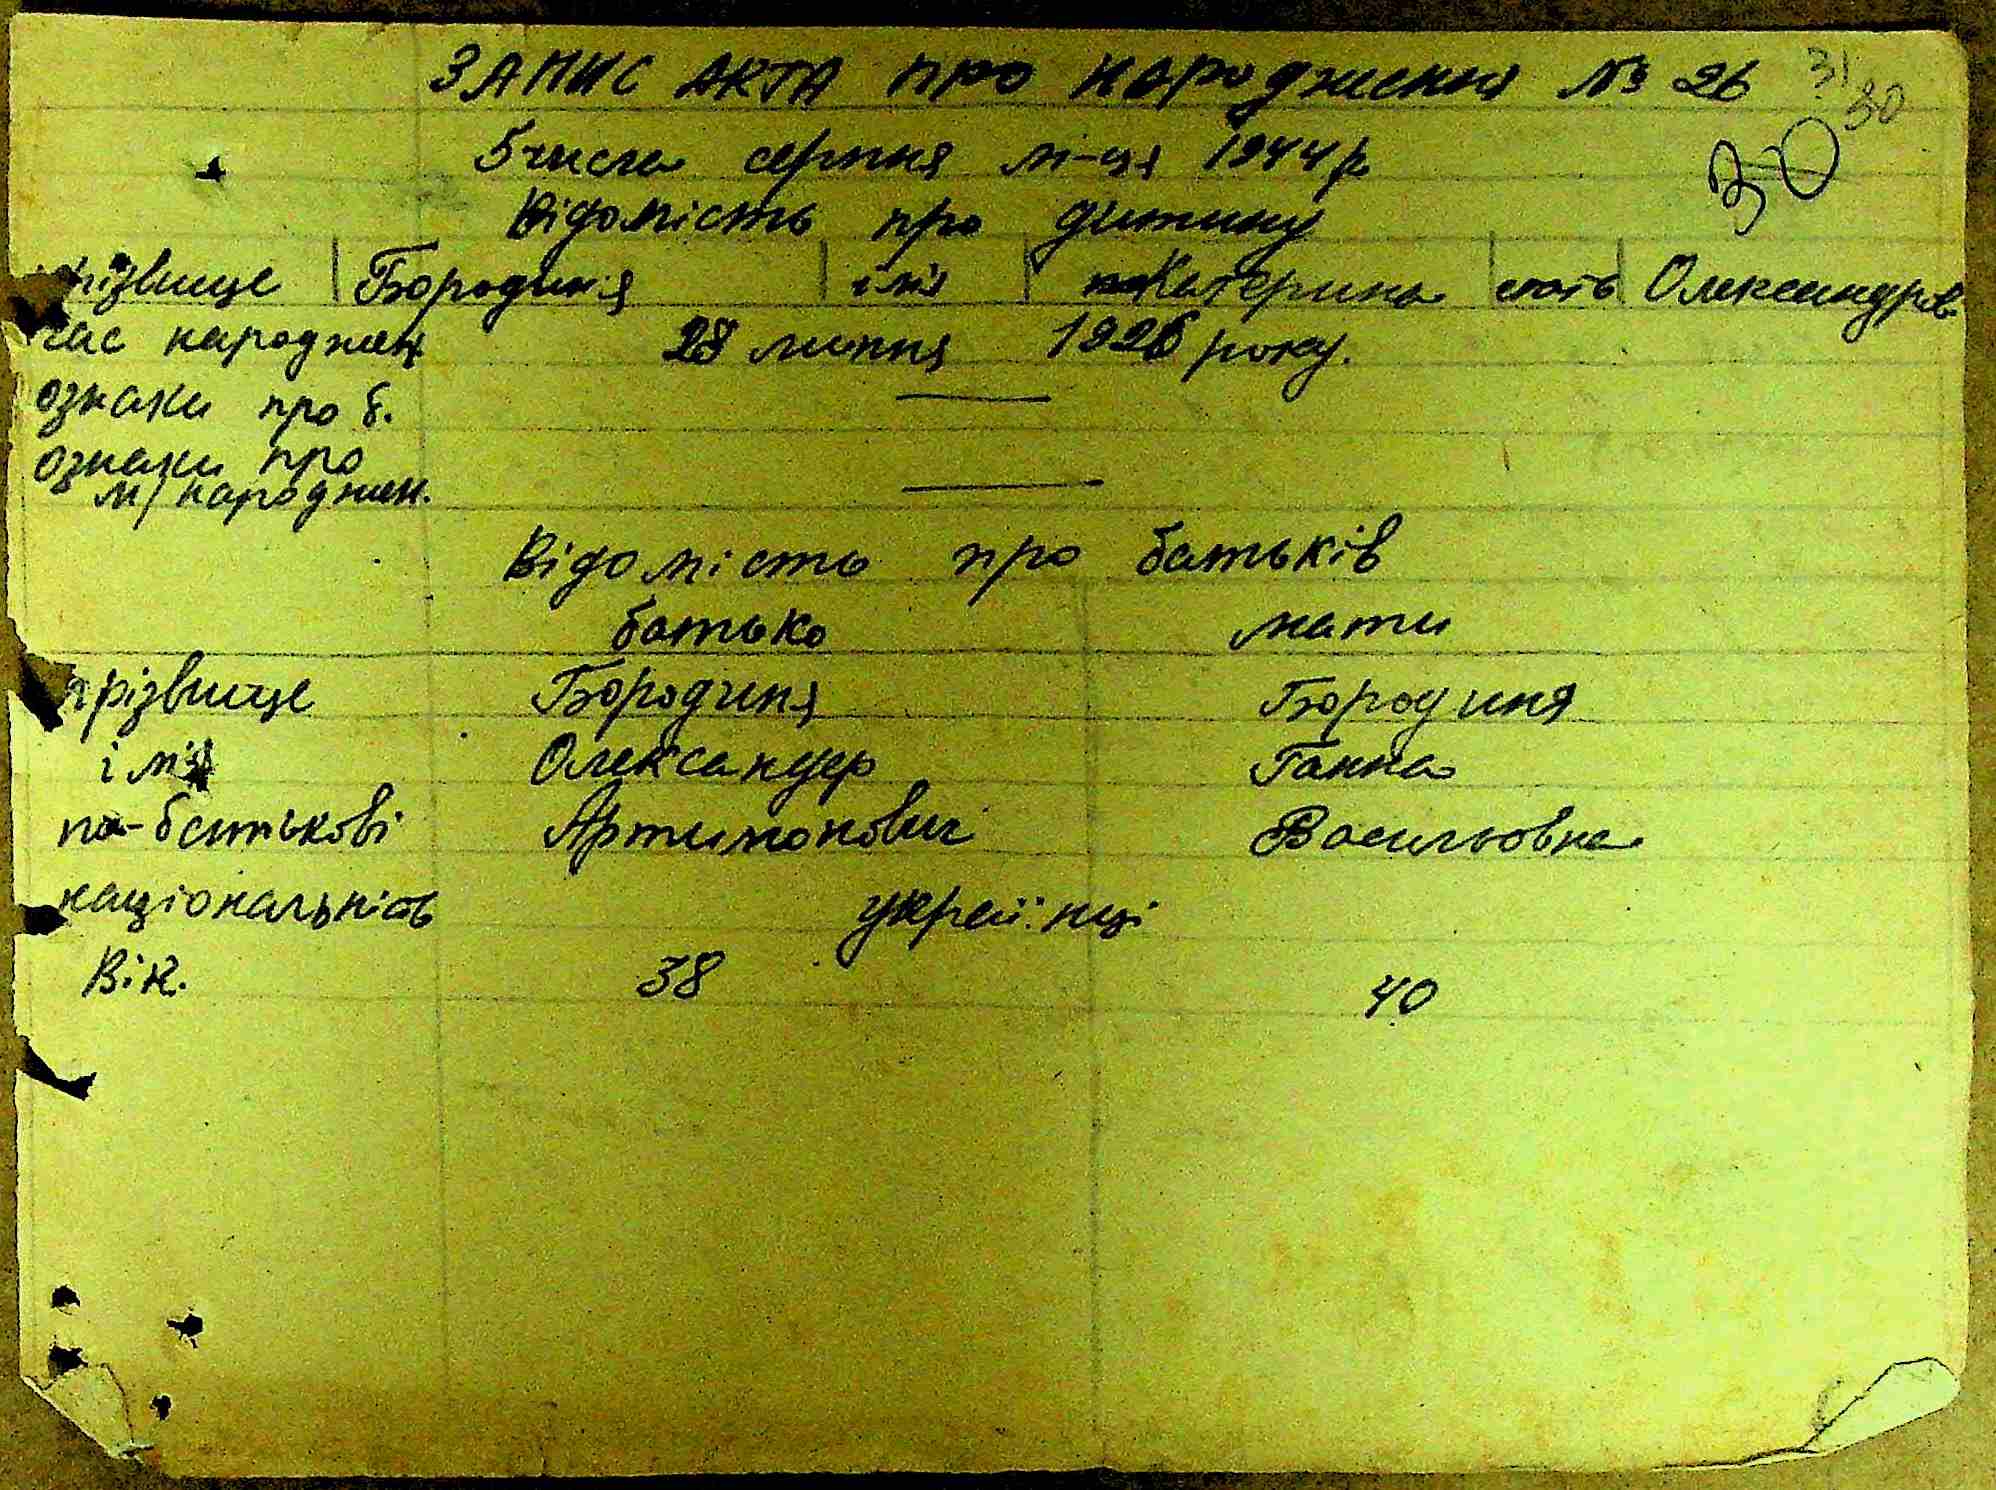 ЗАПИС АКТА про народження № 26
31
30
30
5 числа серпня м-ця 1944 р.
Відомість про дитину
прізвище Бородиня ім'я Катерина стать Олександрів.
час народжен. 28 липня 1926 року.
ознаки про б.
ознаки про
м/народжен.
Відомість про батьків
батько мати
прізвище Бородиня Бородиня
ім'я Олександер Ганна
по-батькові Артимонович Васильовна
національність українці
Вік. 38 40